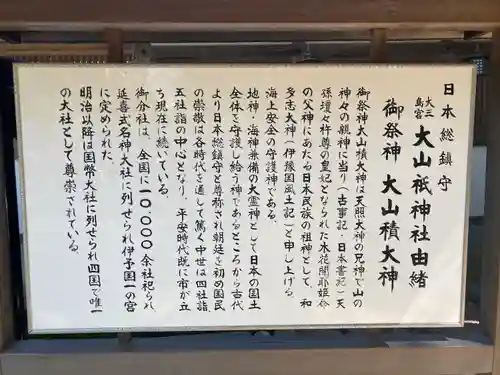 日本総鎮守
大三島宮 大山祇神社由緒
御祭神 大山積大神
御祭神大山積大神は天照大神の兄神で山の
神々の親神に当り(古事記・日本書紀)天
孫瓊々杵尊の皇妃となられた木花開耶姫命
の父神にあたる日本民族の祖神として、和
多志大神(伊豫国風土記)と申し上げる
海上安全の守護神である。
地神・海神兼備の大霊神として日本の国土
全体を守護し給う神であるところから古代
より日本総鎮守と尊称され朝廷を初め国民
の崇敬は各時代を通して篤く中世は四社詣
五社詣の中心となり、平安時代既に市が立
ち現在に続いている。
御分社は、全国に一〇、〇〇〇余社祀られ
延喜式名神大社に列せられ伊予国一の宮
に定められた。
明治以降は国幣大社に列せられ四国で唯一
の大社として尊崇されている。